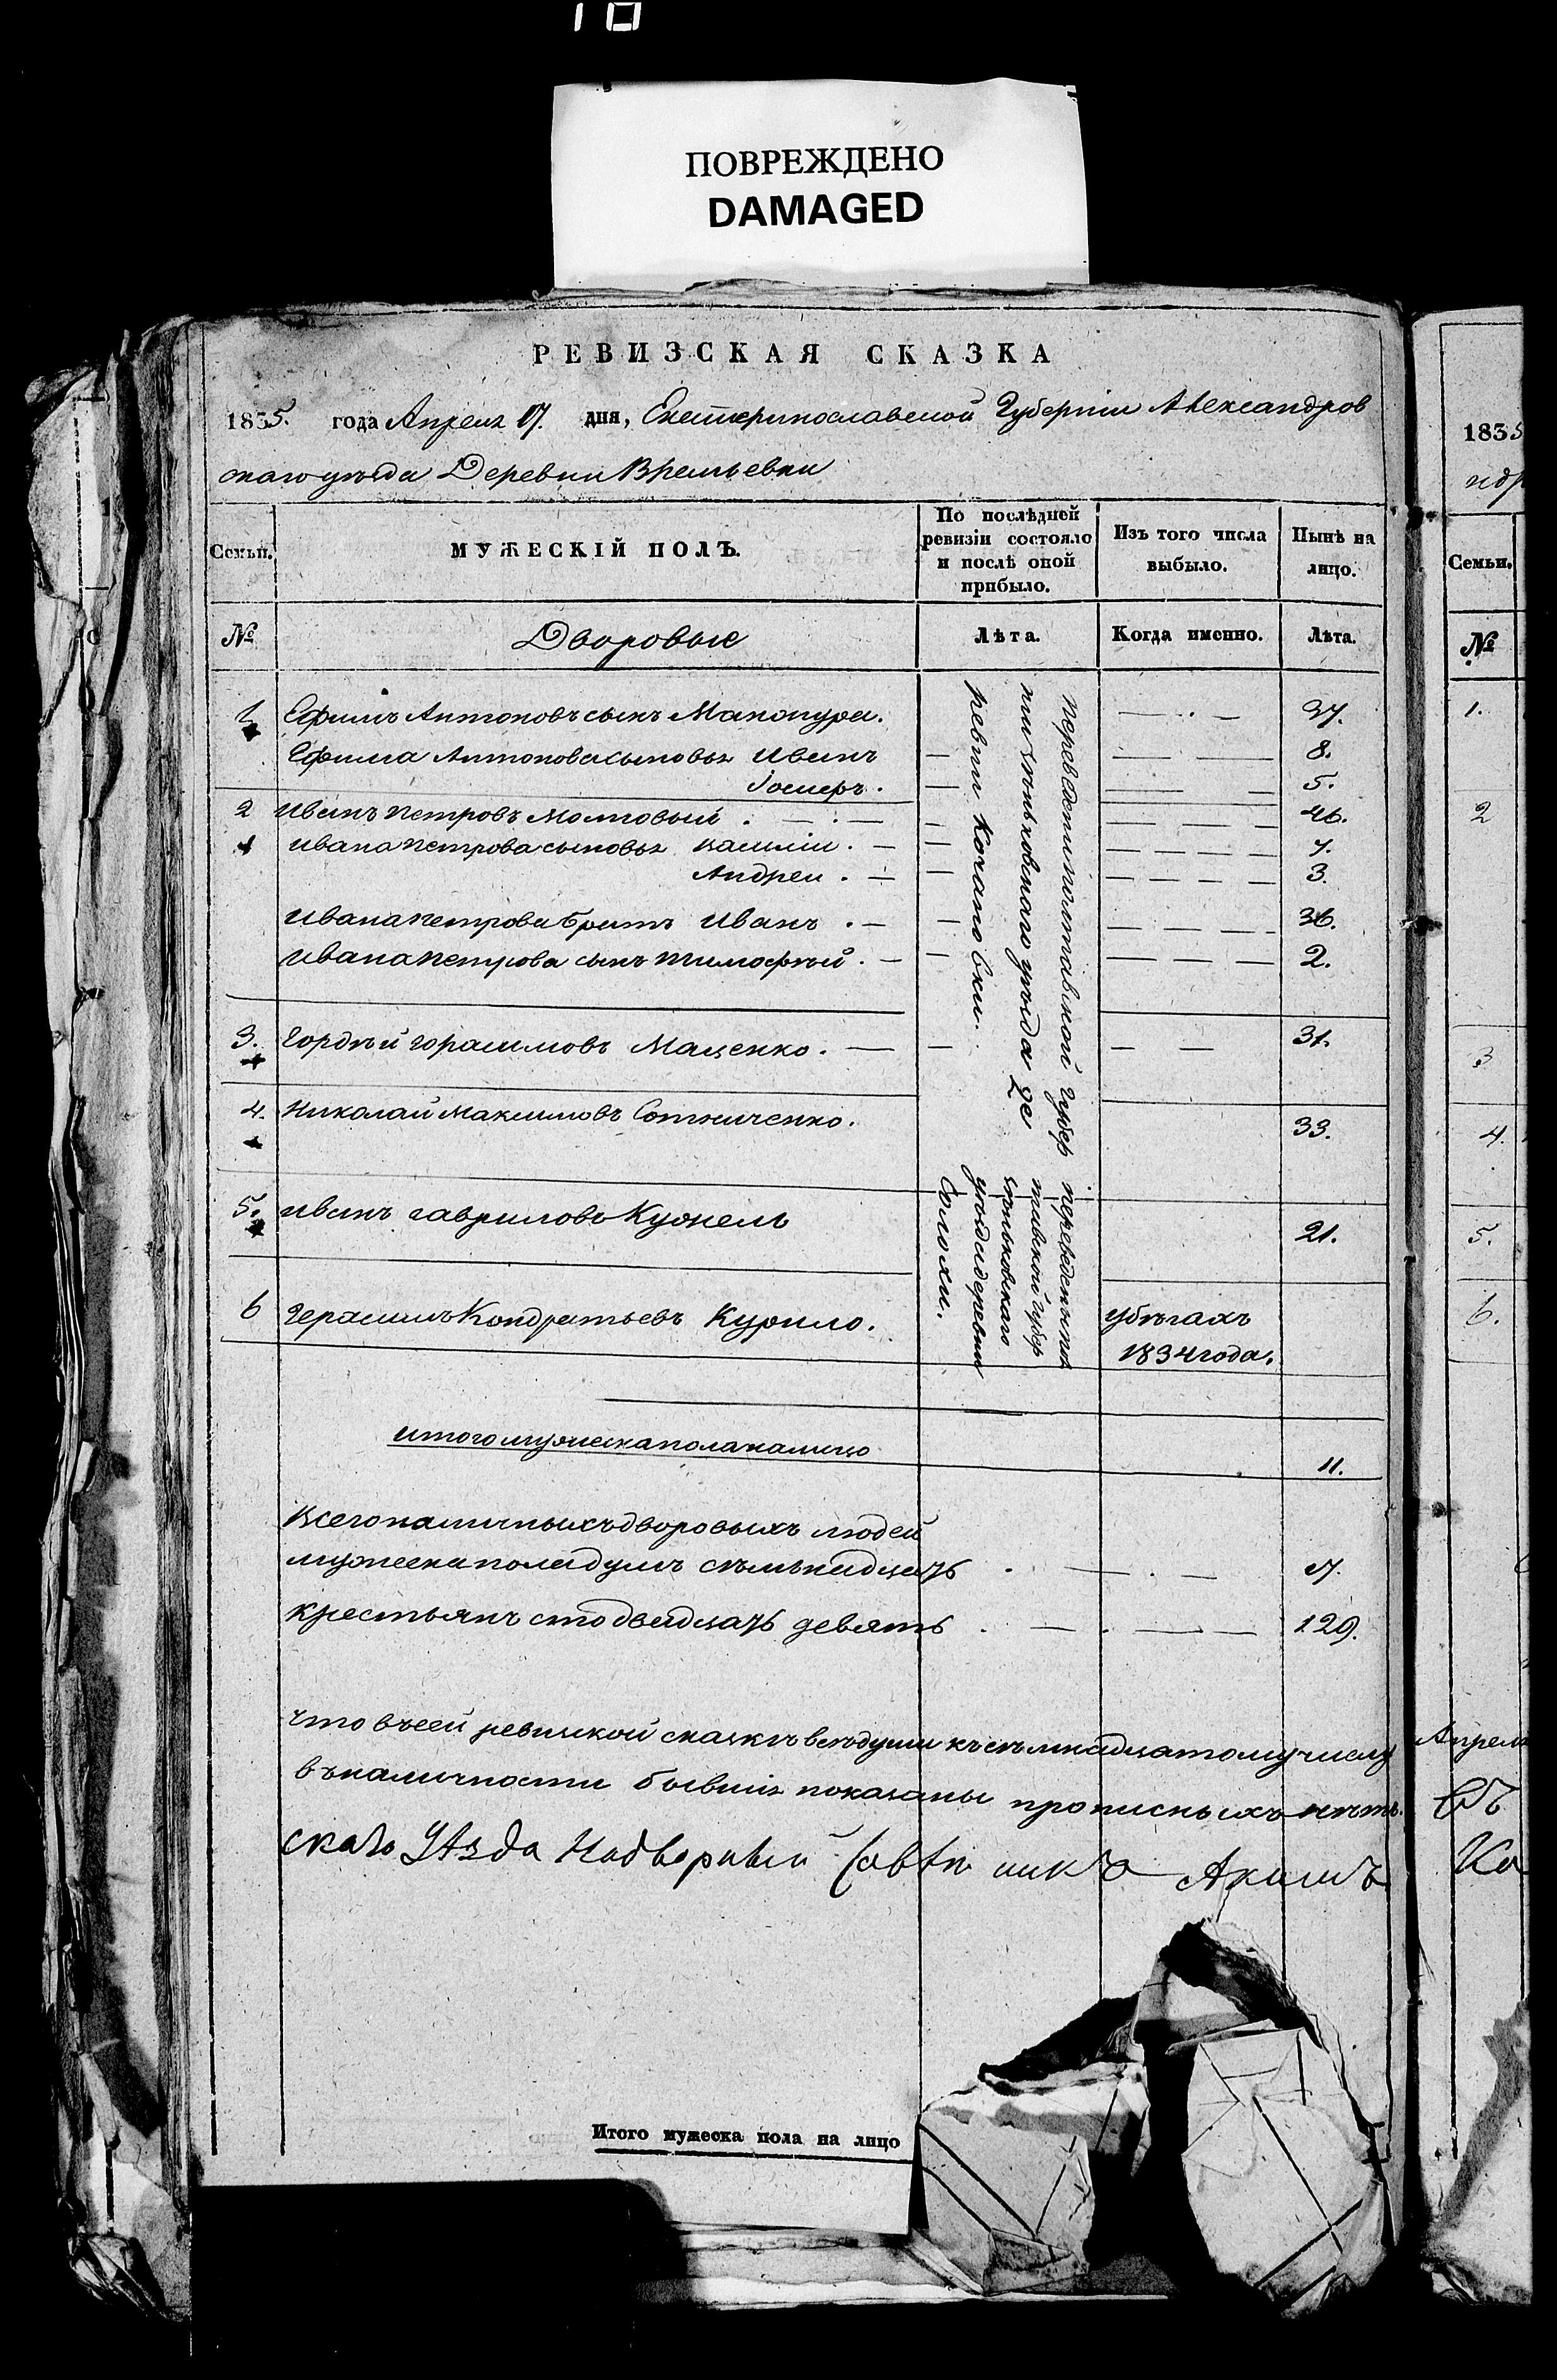 ПОВРЕЖДЕНО
DAMAGED
РЕВИЗСКАЯ СКАЗКА
1835. года Апреля 17. дня, Екатеринославской Губернiи Александров
скаго уѣзда Деревни Времьевки
Семьи. МУЖЕСКIЙ ПОЛЪ. По послѣдней ревизiи состояло и послѣ оной прибыло. Изъ того числа выбыло. Нынѣ на лицо.
№ Дворовые Лѣта. Когда именно. Лѣта.
1 Ефимъ Антоновъ сынъ Маконура. 37.
Ефима Антонова сыновья Иванъ 8.
5.
2 Иванъ Петровъ Молговый 46.
Ивана Петрова сыновья Василiй 7.
Андрей 3.
Ивана Петрова братъ Иванъ 36.
Ивана Петрова сынъ Тимофѣй 2.
3. Гордѣй Горасимовъ Маценко. 31.
4. Николай Максимовъ Сотниченко. 33.
5. Иванъ Гавриловъ Кужель 21.
6 Герасимъ Кондратьевъ Курило. убѣгахъ
1834 года.
переведены полтавской губер
нiи уѣзда де
ревни Качановки.
переведены пол
тавской губер
уѣзда деревни
итого мужеска пола налицо 11.
Всего наличныхъ дворовыхъ людей
мужеска пола душъ семьнадцать 17.
крестьянъ сто двадцать девять 129.
что въ сей ревизской сказкѣ всѣ души къ семнадцатому числу Апреля
въ наличности бывшiя показаны прописныхъ нѣтъ. Въ
скаго Уѣзда Надворный Совѣтникъ Акимъ Ка
Итого мужеска пола на лицо
1835
Семьи.
№
1.
2
3
4.
5.
6.